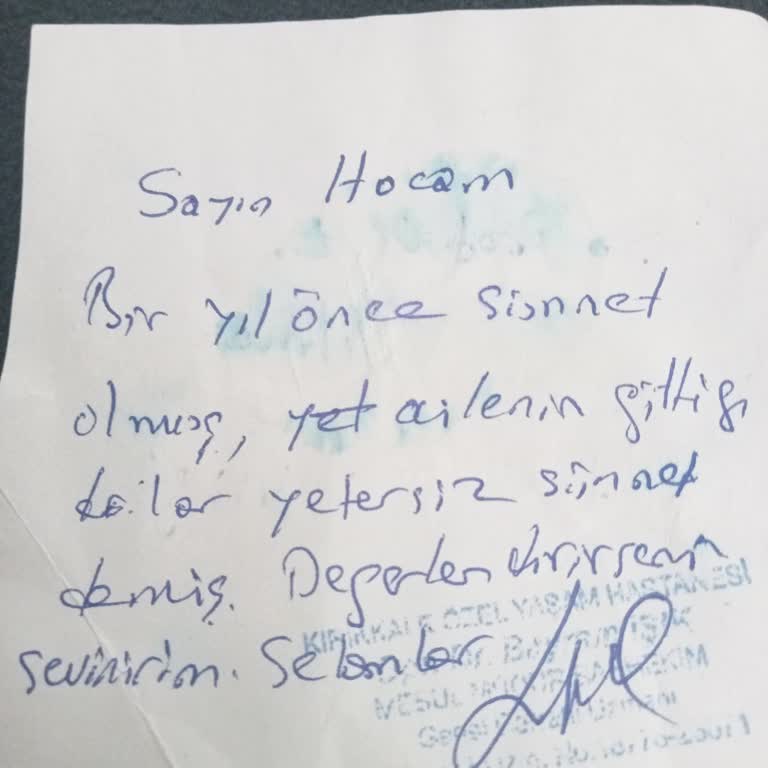 Sayın Hocam
Bir yıl önce sünnet
olmuş, yet ailenin gittiği
yetersiz sünnet
demiş. Değerlendirirseniz
sevinirim. Selamlar
KIRIKKALE ÖZEL YAŞAM HASTANESİ